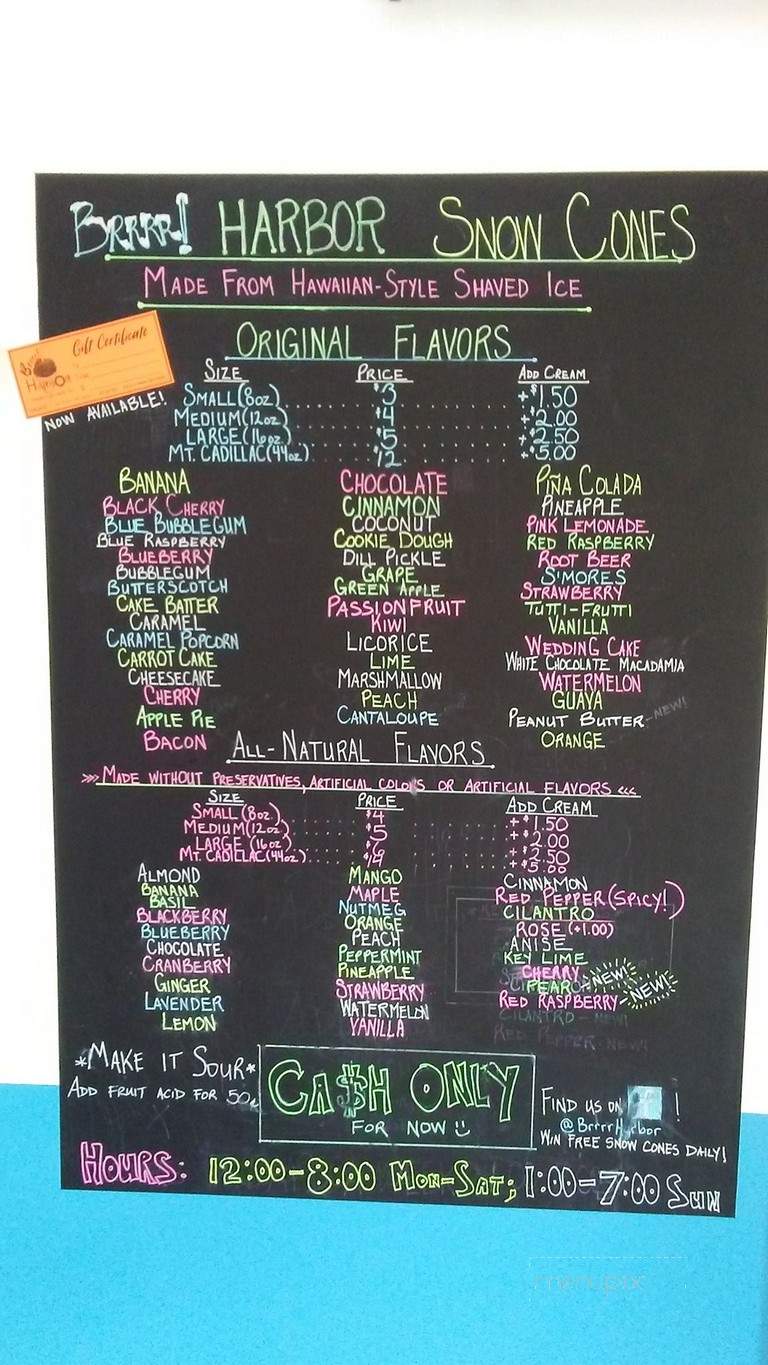 BRRRR! HARBOR SNOW CONES
MADE FROM HAWAIIAN-STYLE SHAVED ICE
Gift Certificate
NOW AVAILABLE!
ORIGINAL FLAVORS
SIZE PRICE ADD CREAM
SMALL (8oz) $3 +$1.50
MEDIUM (12oz) $4 +$2.00
LARGE (16oz) $5 +$2.50
MT. CADILLAC (44oz) $12 +$5.00
BANANA CHOCOLATE PIÑA COLADA
BLACK CHERRY CINNAMON PINEAPPLE
BLUE BUBBLEGUM COCONUT PINK LEMONADE
BLUE RASPBERRY COOKIE DOUGH RED RASPBERRY
BLUEBERRY DILL PICKLE ROOT BEER
BUBBLEGUM GRAPE S'MORES
BUTTERSCOTCH GREEN APPLE STRAWBERRY
CAKE BATTER PASSIONFRUIT TUTTI-FRUTTI
CARAMEL KIWI VANILLA
CARAMEL POPCORN LICORICE WEDDING CAKE
CARROT CAKE LIME WHITE CHOCOLATE MACADAMIA
CHEESECAKE MARSHMALLOW WATERMELON
CHERRY PEACH GUAVA
APPLE PIE CANTALOUPE PEANUT BUTTER-NEW!
BACON ORANGE
ALL-NATURAL FLAVORS
>>> MADE WITHOUT PRESERVATIVES, ARTIFICIAL COLORS OR ARTIFICIAL FLAVORS <<<
SIZE PRICE ADD CREAM
SMALL (8oz) $4 +$1.50
MEDIUM (12oz) $5 +$2.00
LARGE (16oz) +$2.50
MT. CADILLAC (44oz) +$5.00
ALMOND MANGO CINNAMON
BANANA MAPLE RED PEPPER (SPICY!)
BASIL NUTMEG CILANTRO
BLACKBERRY ORANGE ROSE (+1.00)
BLUEBERRY PEACH ANISE
CHOCOLATE PEPPERMINT KEY LIME
CRANBERRY PINEAPPLE CHERRY
GINGER STRAWBERRY PEAR NEW!
LAVENDER WATERMELON RED RASPBERRY-NEW!
LEMON VANILLA CILANTRO - NEW!
RED PEPPER-NEW!
*MAKE IT SOUR*
ADD FRUIT ACID FOR 50¢
CA$H ONLY
FOR NOW
FIND US ON !
@BrrrrHarbor
WIN FREE SNOW CONES DAILY!
HOURS: 12:00-8:00 MON-SAT; 1:00-7:00 SUN
menupix